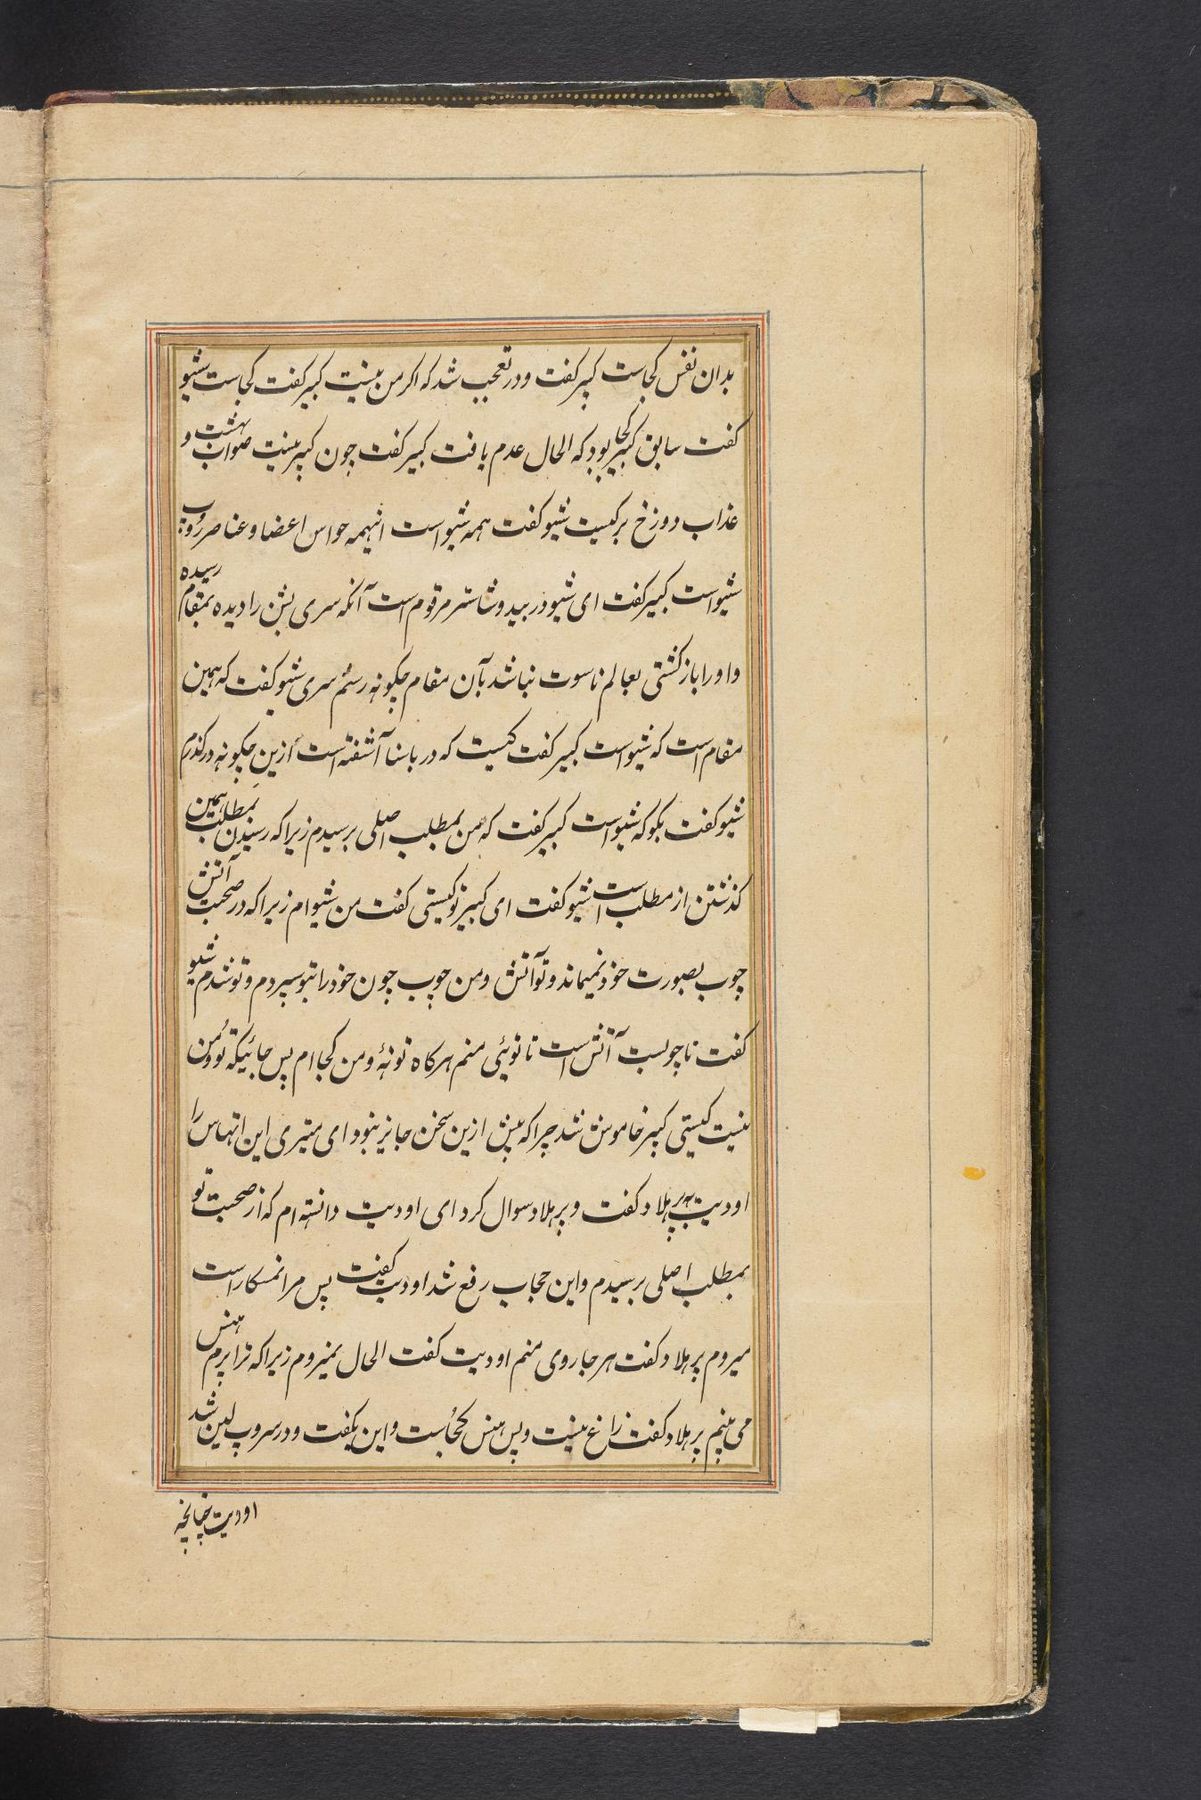 بدان نفس کجاست کبیر کفت و در تعجب شد که اکر من نیست کبیر کفت کجاست شیو
کفت سابق کبیر کجا بود که الحال عدم یافت کبیر کفت چون کبیر نیست صواب بهشت و
عذاب دوزخ بر کیست شیو کفت همه شیو است اینهمه حواس اعضا و عناصر
شیو است کبیر کفت ای شیو در بید و شاستر مرقوم است آنکه سری بشن را دیده بمقام رسیده
و او را باز کشتی بعالم ناسوت نباشد بآن مقام چکونه رسم سری شیو کفت که همین
مقام است که شیو است کبیر کفت کیست که در باسنا آشفته است ازین چکونه درکذرم
شیو کفت بکو که شیو است کبیر کفت که من بمطلب اصلی برسیدم زیرا که رسیدن بمطلب همین
کذشتن از مطلب است شیو کفت ای کبیر تو کیستی کفت من شیوام زیرا که در صحبت آتش
چوب بصورت خود نمیماند و تو آتش و من چوب چون خود را بتو سپردم و تو شدم شیو
کفت تا چوبست آتش است تا توئی منم هرکاه تو نۀ و من کجا ام پس جائیکه تو و من
نیست کیستی کبیر خاموش شد چرا که پیش ازین سخن جایز نبود ای میتری این اتهاس را
اودیت به پرهلاد کفت و پرهلاد سوال کرد ای اودیت دانسته ام که از صحبت تو
بمطلب اصلی برسیدم و این حجاب رفع شد اودیت کفت پس مرا نمسکار است
میروم پرهلاد کفت هر جا روی منم اودیت کفت الحال نمیروم زیرا که ترا پرم هنس
می بینم پرهلاد کفت زاغ نیست و پس هنس کجاست و این بکفت و در سروپ لین شد
اودیت چنانچه